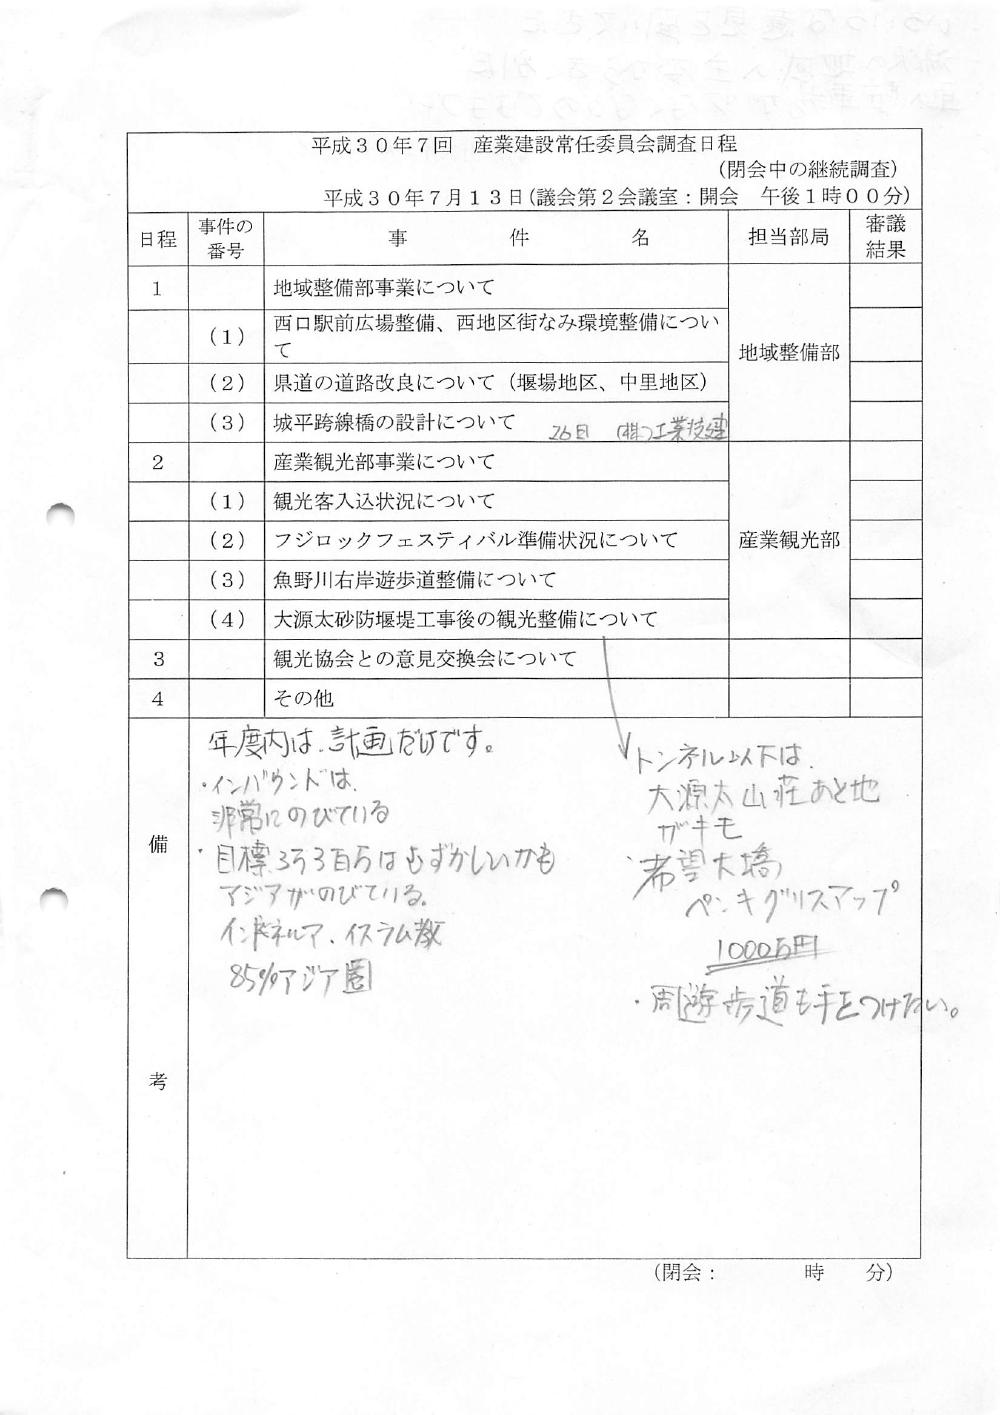 平成３０年７回　産業建設常任委員会調査日程
(閉会中の継続調査)
平成３０年７月１３日(議会第２会議室：開会　午後１時００分)
日程　事件の番号　事　件　名　担当部局　審議結果
１　地域整備部事業について　地域整備部
（１）西口駅前広場整備、西地区街なみ環境整備につい
て
（２）県道の道路改良について（堰場地区、中里地区）
（３）城平跨線橋の設計について　26日　(株)工業技建
２　産業観光部事業について　産業観光部
（１）観光客入込状況について
（２）フジロックフェスティバル準備状況について
（３）魚野川右岸遊歩道整備について
（４）大源太砂防堰堤工事後の観光整備について
３　観光協会との意見交換会について
４　その他
備考
年度内は、計画だけです。
・インバウンドは、
非常にのびている
・目標3万3百万はむずかしいかも
アジアがのびている。
インドネルア、イスラム教
85%アジア圏
トンネル以下は、
大源太山荘あと地
がキモ
・希望大橋
ペンキグリスアップ
1000万円
・周遊歩道も手をつけたい。
(閉会：　　時　　分)